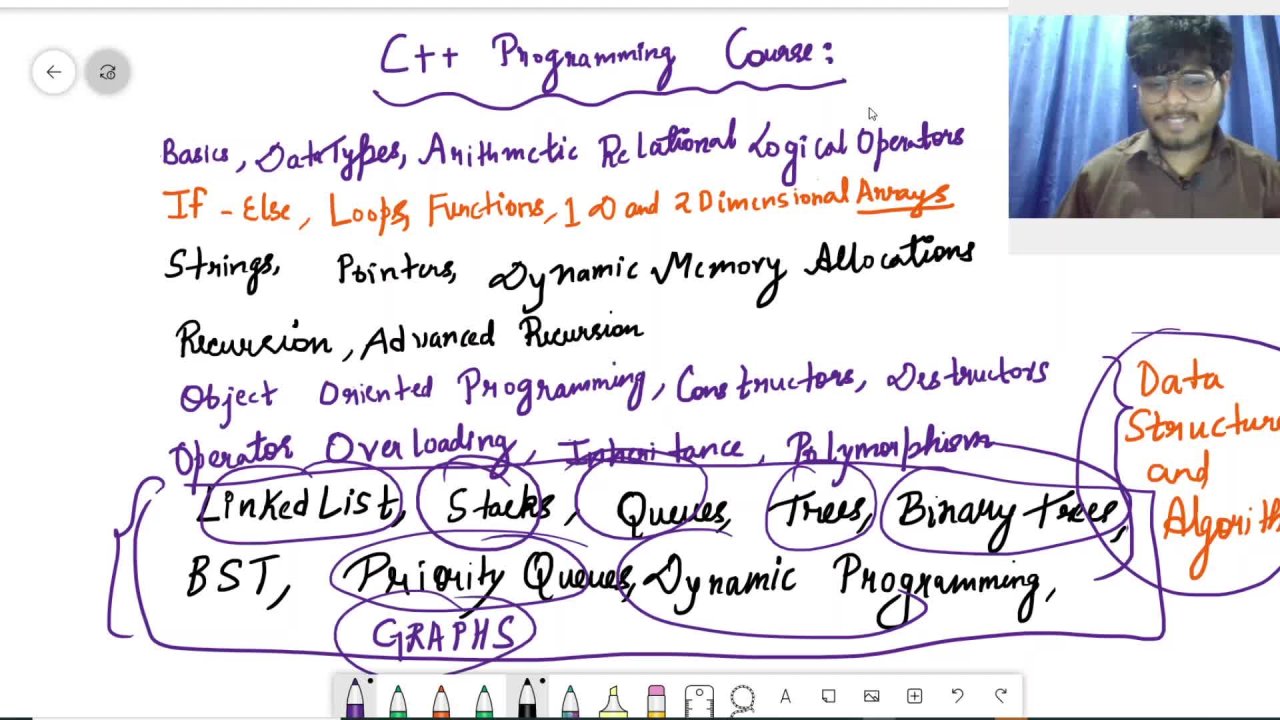 C++ Programming Course:
Basics, DataTypes, Arithmetic Relational Logical Operators
If - Else, Loops, Functions, 1 D and 2 Dimensional Arrays
Strings, Pointers, Dynamic Memory Allocations
Recursion, Advanced Recursion
Object Oriented Programming, Constructors, Destructors
Operator Overloading, Inheritance, Polymorphism
Linked List, Stacks, Queues, Trees, Binary Trees,
BST, Priority Queues, Dynamic Programming,
GRAPHS
Data
Structure
and
Algorith
A